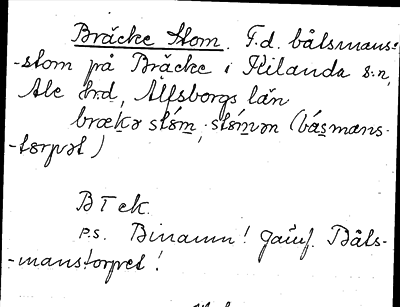 Bräcke Stom. F.d. bålsmans-
-stom på Bräcke i Kilanda s:n,
Ale hrd, Älfsborgs län
brækə stóm, stómən (básmans-
-tɛrpət)
BTek.
P.S. Binamn! Jämf. Båls-
-manstorpet!